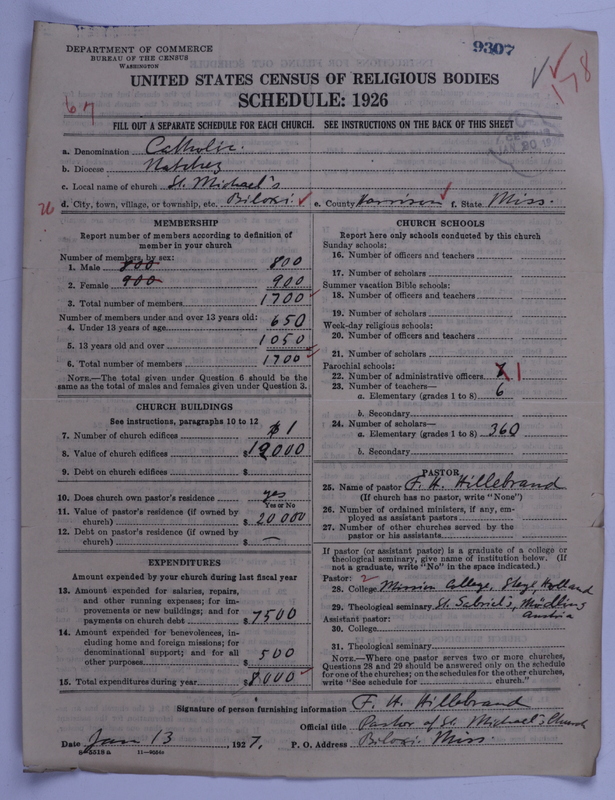 DEPARTMENT OF COMMERCE
BUREAU OF THE CENSUS
WASHINGTON
9307
178
67
UNITED STATES CENSUS OF RELIGIOUS BODIES
SCHEDULE: 1926
FILL OUT A SEPARATE SCHEDULE FOR EACH CHURCH. SEE INSTRUCTIONS ON THE BACK OF THIS SHEET
a. Denomination Catholic.
b. Diocese Natchez
c. Local name of church St. Michael's
d. City, town, village, or township, etc. Biloxi. e. County Harrison f. State Miss.
MEMBERSHIP
Report number of members according to definition of
member in your church
Number of members, by sex:
1. Male 800 800
2. Female 900 900
3. Total number of members 1700
Number of members under and over 13 years old:
4. Under 13 years of age 650
5. 13 years old and over 1050
6. Total number of members 1700
NOTE.—The total given under Question 6 should be the
same as the total of males and females given under Question 3.
CHURCH BUILDINGS
See instructions, paragraphs 10 to 12
7. Number of church edifices 1
8. Value of church edifices $ 12000
9. Debt on church edifices $
10. Does church own pastor's residence yes
Yes or No
11. Value of pastor's residence (if owned by
church) $ 20000
12. Debt on pastor's residence (if owned by
church) $ —
EXPENDITURES
Amount expended by your church during last fiscal year
13. Amount expended for salaries, repairs,
and other running expenses; for im-
provements or new buildings; and for
payments on church debt $ 7500
14. Amount expended for benevolences, in-
cluding home and foreign missions; for
denominational support; and for all
other purposes 500
15. Total expenditures during year $ 8000
CHURCH SCHOOLS
Report here only schools conducted by this church
Sunday schools:
16. Number of officers and teachers
17. Number of scholars
Summer vacation Bible schools:
18. Number of officers and teachers
19. Number of scholars
Week-day religious schools:
20. Number of officers and teachers
21. Number of scholars
Parochial schools:
22. Number of administrative officers 1
23. Number of teachers—
a. Elementary (grades 1 to 8) 6
b. Secondary
24. Number of scholars—
a. Elementary (grades 1 to 8) 360
b. Secondary
PASTOR
25. Name of pastor F. H. Hillebrand
(If church has no pastor, write "None")
26. Number of ordained ministers, if any, em-
ployed as assistant pastors
27. Number of other churches served by the
pastor or his assistants
If pastor (or assistant pastor) is a graduate of a college or
theological seminary, give name of institution below. (If
not a graduate, write "No" in the space indicated.)
Pastor: 2
28. College Mission College, Steyl Holland
29. Theological seminary St. Gabriel's, Mödling
Austria
Assistant pastor:
30. College
31. Theological seminary
NOTE.—Where one pastor serves two or more churches,
Questions 28 and 29 should be answered only on the schedule
for one of the churches; on the schedules for the other churches,
write "See schedule for church."
Signature of person furnishing information F. H. Hillebrand
Official title Pastor of St. Michael's Church
Date Jan 13, 1927. P. O. Address Biloxi Miss.